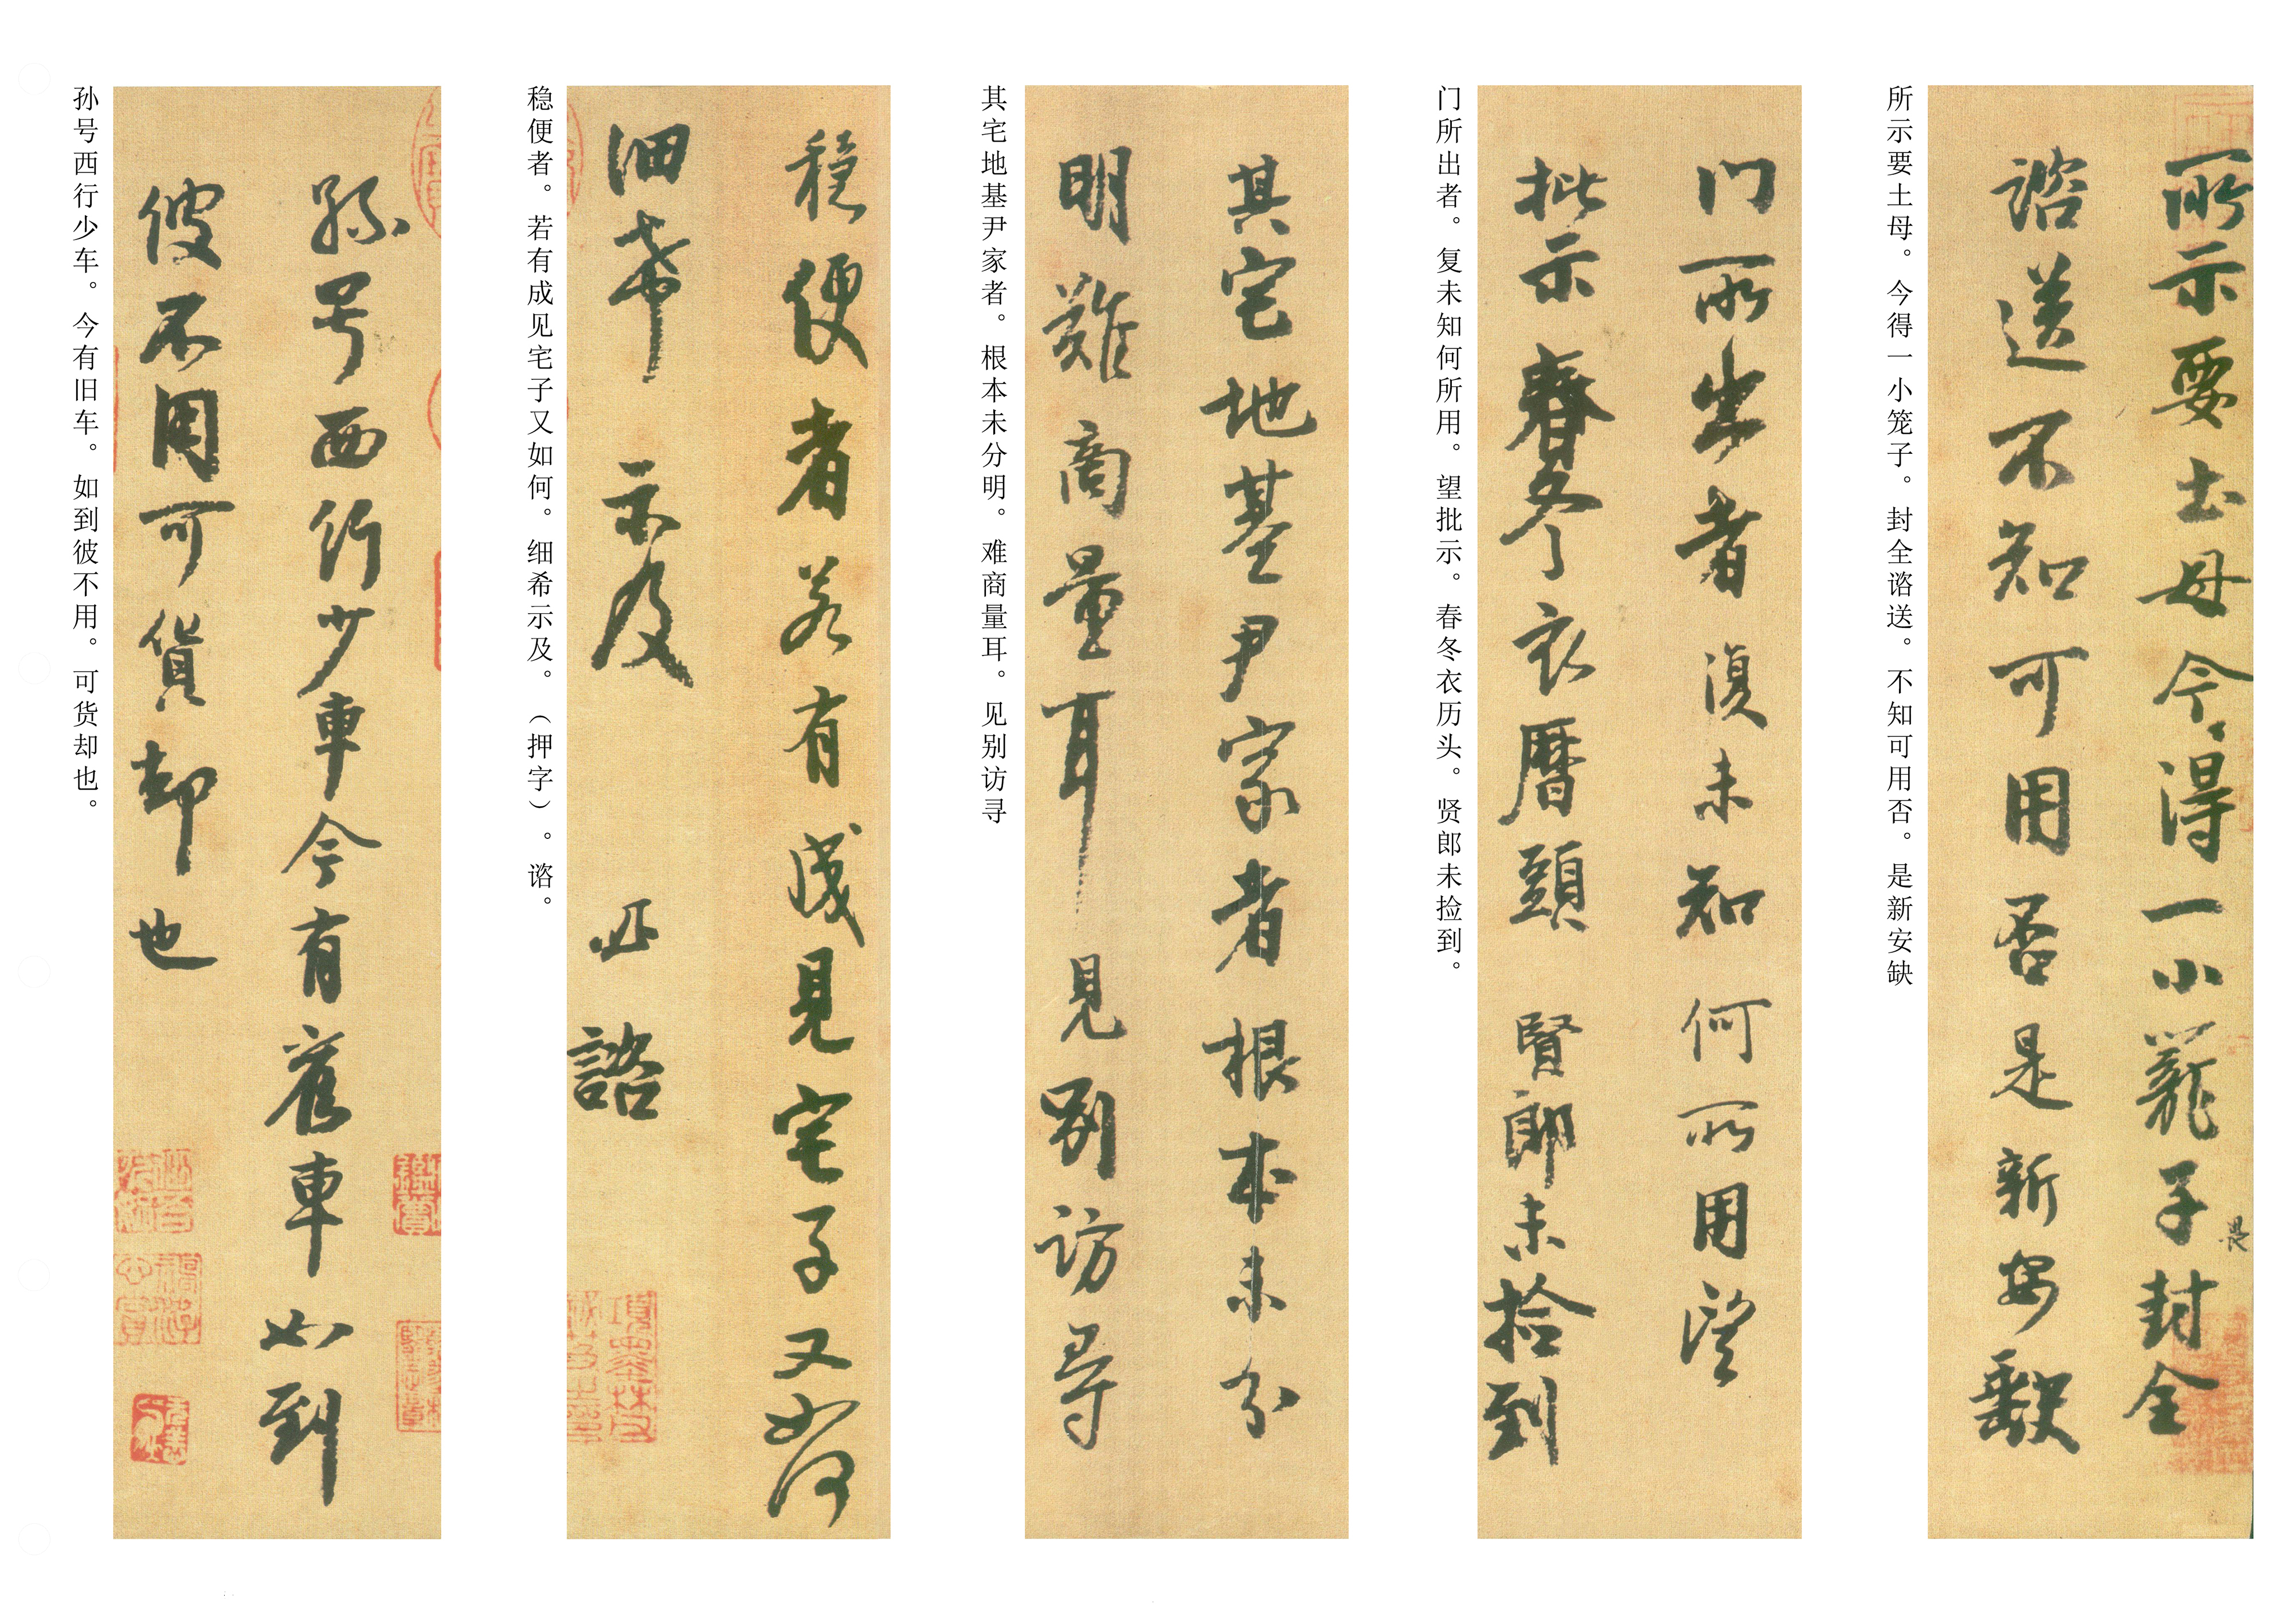 所示要土母今得一小笼子封全
諮送不知可用否是新安缺
所示要土母。今得一小笼子。封全谘送。不知可用否。是新安缺
门所出者復未知何所用望
批示春冬衣曆頭賢郎未捡到
门所出者。复未知何所用。望批示。春冬衣历头。贤郎未捡到。
其宅地基尹家者根本未分
明難商量耳見别访尋
其宅地基尹家者。根本未分明。难商量耳。见别访寻
穩便者若有成見宅子又如何
细希示及 諮
稳便者。若有成见宅子又如何。细希示及。（押字）。谘。
孫号西行少車今有舊車如到
彼不用可貨却也
孙号西行少车。今有旧车。如到彼不用。可货却也。